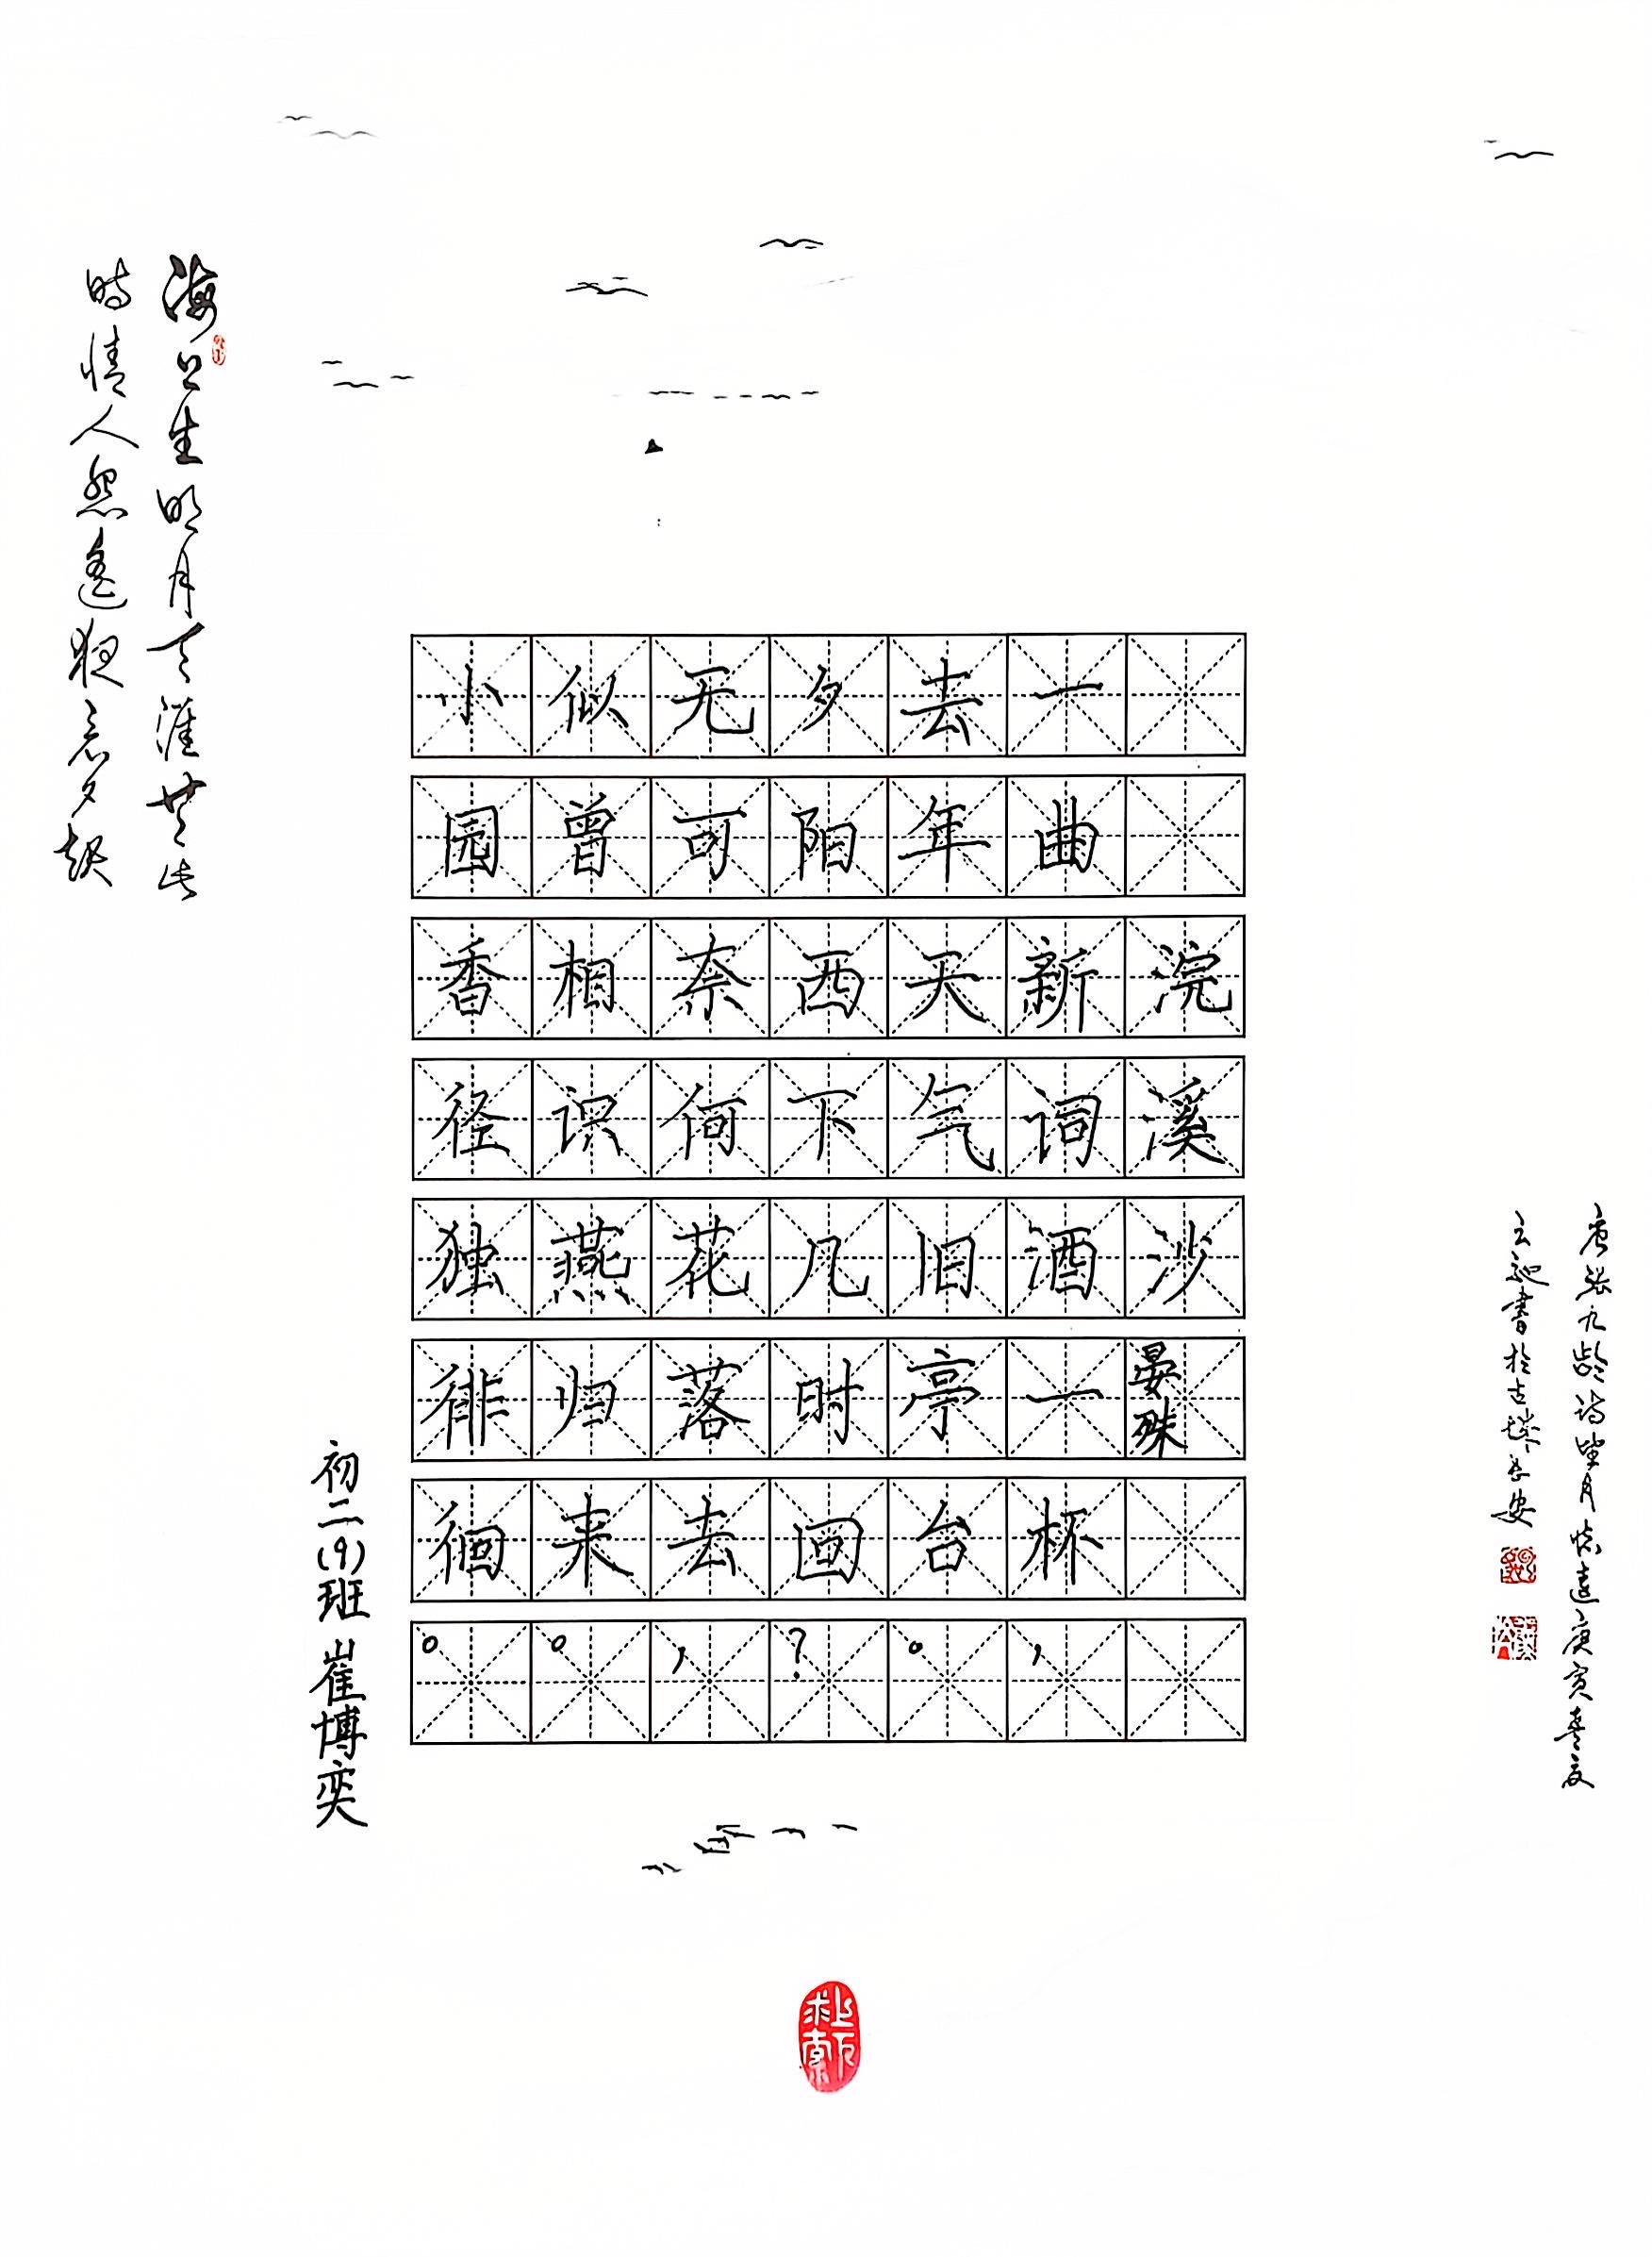 唐张九龄诗望月怀远庚寅春
书於古城长安
浣溪沙 晏殊
一曲新词酒一杯，
去年天气旧亭台。
夕阳西下几时回？
无可奈何花落去，
似曾相识燕归来。
小园香径独徘徊。
初二(9)班 崔博奕
海上生明月天涯共此
時情人怨遙夜竟夕起
上下求索